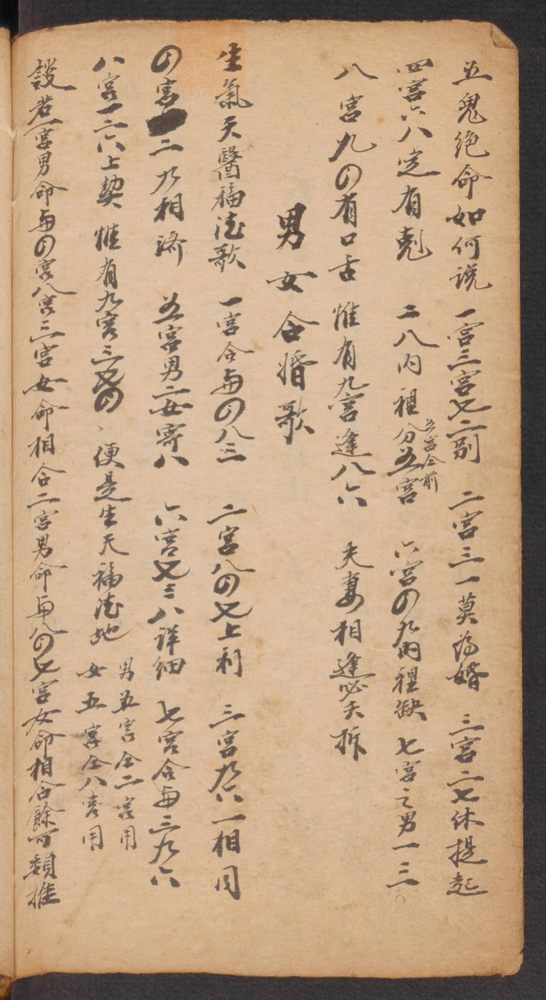 五鬼绝命如何说 一宫三宫七二别 二宫三一莫为婚 三宫二七休提起
四宫六八定有剋 二八内祖分五宫 五宫仝前 六宫の九内裡缺 七宫之男一三
八宫九の有口舌 惟有九宫逢八六 夫妻相逢必夭拆
男女合婚歌
生氣天醫福德歌 一宫合与の八三 二宫八の七上利 三宫九六一相同
の宫一二九相济 五宫男二女寄八 六宫七二八详细 七宫合与二九六
八宫一二六上契 惟有九宫三七の 便是生天福德地 男五宫仝二宫用
女五宫仝八宫用
設若一宫男命与の宫八宫三宫女命相合二宫男命与八の七宫女命相合餘可類推